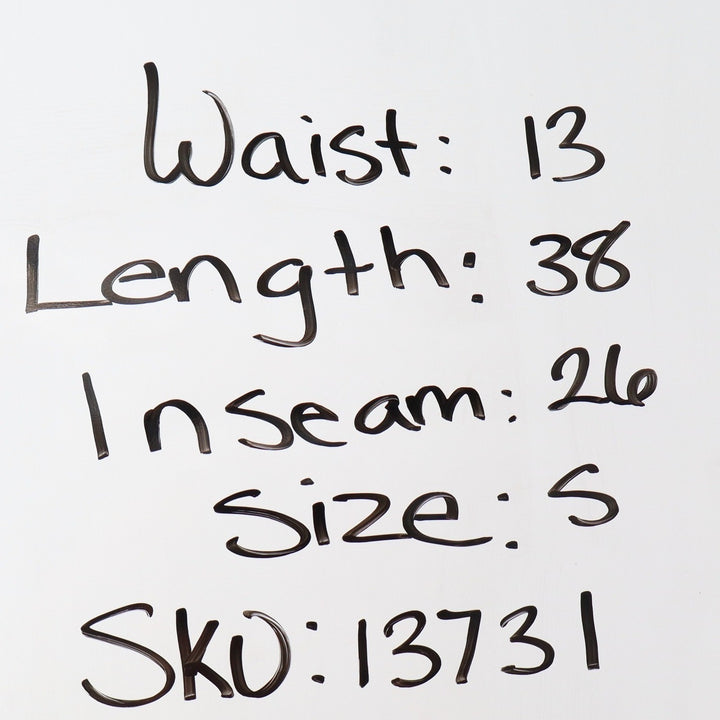 Waist: 13
Length: 38
Inseam: 26
Size: S
SKU: 13731